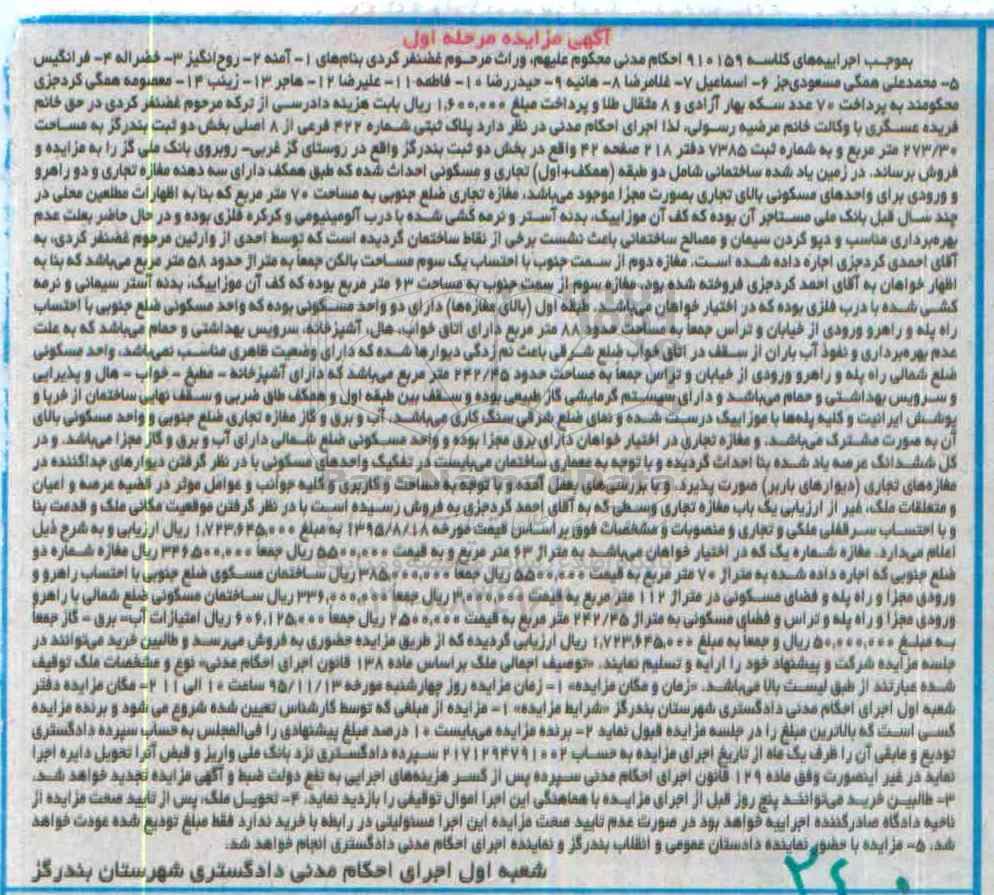 آگهی مزایده مرحله اول
بموجب اجراییه‌های کلاسه ۹۱۰۱۵۹ احکام مدنی محکوم علیهم، وراث مرحوم غضنفر کردی بنام‌های ۱- آمنه ۲- روح‌انگیز ۳- خضراله ۴- فرانگیس
۵- محمدعلی همگی مسعودی‌جز ۶- اسماعیل ۷- غلامرضا ۸- هانیه ۹- حیدررضا ۱۰- فاطمه ۱۱- علیرضا ۱۲- هاجر ۱۳- زینب ۱۴- معصومه همگی کردجزی
محکومند به پرداخت ۷۰ عدد سکه بهار آزادی و ۸ مثقال طلا و پرداخت مبلغ ۱,۶۰۰,۰۰۰ ریال بابت هزینه دادرسی از ترکه مرحوم غضنفر کردی در حق خانم
فریده عسگری با وکالت خانم مرضیه رسولی، لذا اجرای احکام مدنی در نظر دارد پلاک ثبتی شماره ۴۲۲ فرعی از ۸ اصلی بخش دو ثبت بندرگز به مساحت
۲۷۳/۳۰ متر مربع و به شماره ثبت ۷۳۸۵ دفتر ۲۱۸ صفحه ۴۲ واقع در بخش دو ثبت بندرگز واقع در روستای گز غربی- روبروی بانک ملی گز را به مزایده و
فروش برساند. در زمین یاد شده ساختمانی شامل دو طبقه (همکف+اول) تجاری و مسکونی احداث شده که طبق همکف دارای سه دهنه مغازه تجاری و دو راهرو
و ورودی برای واحدهای مسکونی بالای تجاری بصورت مجزا موجود می‌باشد، مغازه تجاری ضلع جنوبی به مساحت ۷۰ متر مربع که بنا به اظهارات مطلعین محلی در
چند سال قبل بانک ملی مستاجر آن بوده که کف آن موزاییک، بدنه آستر و نرمه کشی شده با درب آلومینیومی و کرکره فلزی بوده و در حال حاضر بعلت عدم
بهره‌برداری مناسب و دپو کردن سیمان و مصالح ساختمانی باعث نشست برخی از نقاط ساختمان گردیده است که توسط احدی از وارثین مرحوم غضنفر کردی، به
آقای احمدی کردجزی اجاره داده شده است. مغازه دوم از سمت جنوب با احتساب یک سوم مساحت بالکن جمعا به متراژ حدود ۵۸ متر مربع می‌باشد که بنا به
اظهار خواهان به آقای احمد کردجزی فروخته شده بود، مغازه سوم از سمت جنوب به مساحت ۶۳ متر مربع بوده که کف آن موزاییک، بدنه آستر سیمانی و نرمه
کشی شده با درب فلزی بوده که در اختیار خواهان می‌باشد. طبقه اول (بالای مغازه‌ها) دارای دو واحد مسکونی بوده که واحد مسکونی ضلع جنوبی با احتساب
راه پله و راهرو ورودی از خیابان و تراس جمعا به مساحت حدود ۸۸ متر مربع دارای اتاق خواب، هال، آشپزخانه، سرویس بهداشتی و حمام می‌باشد که به علت
عدم بهره‌برداری و نفوذ آب باران از سقف در اتاق خواب ضلع شرقی باعث نم زدگی دیوارها شده که دارای وضعیت ظاهری مناسب نمی‌باشد، واحد مسکونی
ضلع شمالی راه پله و راهرو ورودی از خیابان و تراس جمعا به مساحت حدود ۲۴۲/۴۵ متر مربع می‌باشد که دارای آشپزخانه - مطبخ - خواب - هال و پذیرایی
و سرویس بهداشتی و حمام می‌باشد و دارای سیستم گرمایشی گاز طبیعی بوده و سقف بین طبقه اول و همکف طاق ضربی و سقف نهایی ساختمان از خرپا و
پوشش ایرانیت و کلیه پله‌ها با موزاییک درست شده و نمای ضلع شرقی سنگ کاری می‌باشد. آب و برق و گاز مغازه تجاری ضلع جنوبی و واحد مسکونی بالای
آن به صورت مشترک می‌باشد. و مغازه تجاری در اختیار خواهان دارای برق مجزا بوده و واحد مسکونی ضلع شمالی دارای آب و برق و گاز مجزا می‌باشد. و در
کل ششدانگ عرصه یاد شده بنا احداث گردیده و با توجه به معماری ساختمان می‌بایست در تفکیک واحدهای مسکونی با در نظر گرفتن دیوارهای جداکننده در
مغازه‌های تجاری (دیوارهای باربر) صورت پذیرد. با بررسی‌های بعمل آمده و با توجه به مساحت و کاربری و کلیه جوانب و عوامل موثر در قضیه عرصه و اعیان
و متعلقات ملک، غیر از ارزیابی یک باب مغازه تجاری وسطی که به آقای احمد کردجزی به فروش رسیده است با در نظر گرفتن موقعیت مکانی ملک و قدمت بنا
و با احتساب سرقفلی ملکی و تجاری و منصوبات و مشخصات فوق بر اساس قیمت مورخه ۱۳۹۵/۸/۱۸ به مبلغ ۱,۷۲۳,۶۴۵,۰۰۰ ریال ارزیابی و به شرح ذیل
اعلام می‌دارد. مغازه شماره یک که در اختیار خواهان می‌باشد به متراژ ۶۳ متر مربع و به قیمت ۵۵۰۰,۰۰۰ ریال جمعا ۳۴۶۵۰۰,۰۰۰ ریال مغازه شماره دو
ضلع جنوبی که اجاره داده شده به متراژ ۷۰ متر مربع به قیمت ۵۵۰۰,۰۰۰ ریال جمعا ۳۸۵,۰۰۰,۰۰۰ ریال ساختمان مسکوی ضلع جنوبی با احتساب راهرو و
ورودی مجزا و راه پله و فضای مسکونی در متراژ ۱۱۲ متر مربع به قیمت ۳,۰۰۰,۰۰۰ ریال جمعا ۳۳۶,۰۰۰,۰۰۰ ریال ساختمان مسکونی ضلع شمالی با راهرو
ورودی مجزا و راه پله و تراس و فضای مسکونی به متراژ ۲۴۲/۴۵ متر مربع به قیمت ۲۵۰۰,۰۰۰ ریال جمعا ۶۰۶,۱۲۵,۰۰۰ ریال امتیازات آب- برق - گاز جمعا
به مبلیغ ۵۰,۰۰۰,۰۰۰ ریال و جمعا به مبلغ ۱,۷۲۳,۶۴۵,۰۰۰ ریال ارزیابی گردیده که از طریق مزایده حضوری به فروش می‌رسد و طالبین خرید می‌توانند در
جلسه مزایده شرکت و پیشنهاد خود را ارایه و تسلیم نمایند. «توصیف اجمالی ملک براساس ماده ۱۳۸ قانون اجرای احکام مدنی» نوع و مشخصات ملک توقیف
شده عبارتند از طبق لیست بالا می‌باشد. «زمان و مکان مزایده» ۱- زمان مزایده روز چهارشنبه مورخه ۹۵/۱۱/۱۳ ساعت ۱۰ الی ۱۱ ۲- مکان مزایده دفتر
شعبه اول اجرای احکام مدنی دادگستری شهرستان بندرگز «شرایط مزایده» ۱- مزایده از مبلغی که توسط کارشناس تعیین شده شروع می شود و برنده مزایده
کسی است که بالاترین مبلغ را در جلسه مزایده قبول نماید ۲- برنده مزایده می‌بایست ۱۰ درصد مبلغ پیشنهادی را فی‌المجلس به حساب سپرده دادگستری
تودیع و مابقی آن را ظرف یک ماه از تاریخ اجرای مزایده به حساب ۲۱۷۱۲۹۴۷۹۱۰۰۲ سپرده دادگستری نزد بانک ملی واریز و قبض آنرا تحویل دایره اجرا
نماید در غیر اینصورت وفق ماده ۱۲۹ قانون اجرای احکام مدنی سپرده پس از کسر هزینه‌های اجرایی به نفع دولت ضبط و آگهی مزایده تجدید خواهد شد.
۳- طالبین خرید می‌توانند پنج روز قبل از اجرای مزایده با هماهنگی این اجرا اموال توقیفی را بازدید نماید. ۴- تحویل ملک، پس از تایید صحت مزایده از
ناحیه دادگاه صادرکننده اجراییه خواهد بود در صورت عدم تایید صحت مزایده این اجرا مسئولیتی در رابطه با خرید ندارد فقط مبلغ تودیع شده عودت خواهد
شد. ۵- مزایده با حضور نماینده دادستان عمومی و انقلاب بندرگز و نماینده اجرای احکام مدنی دادگستری انجام خواهد شد.
شعبه اول اجرای احکام مدنی دادگستری شهرستان بندرگز